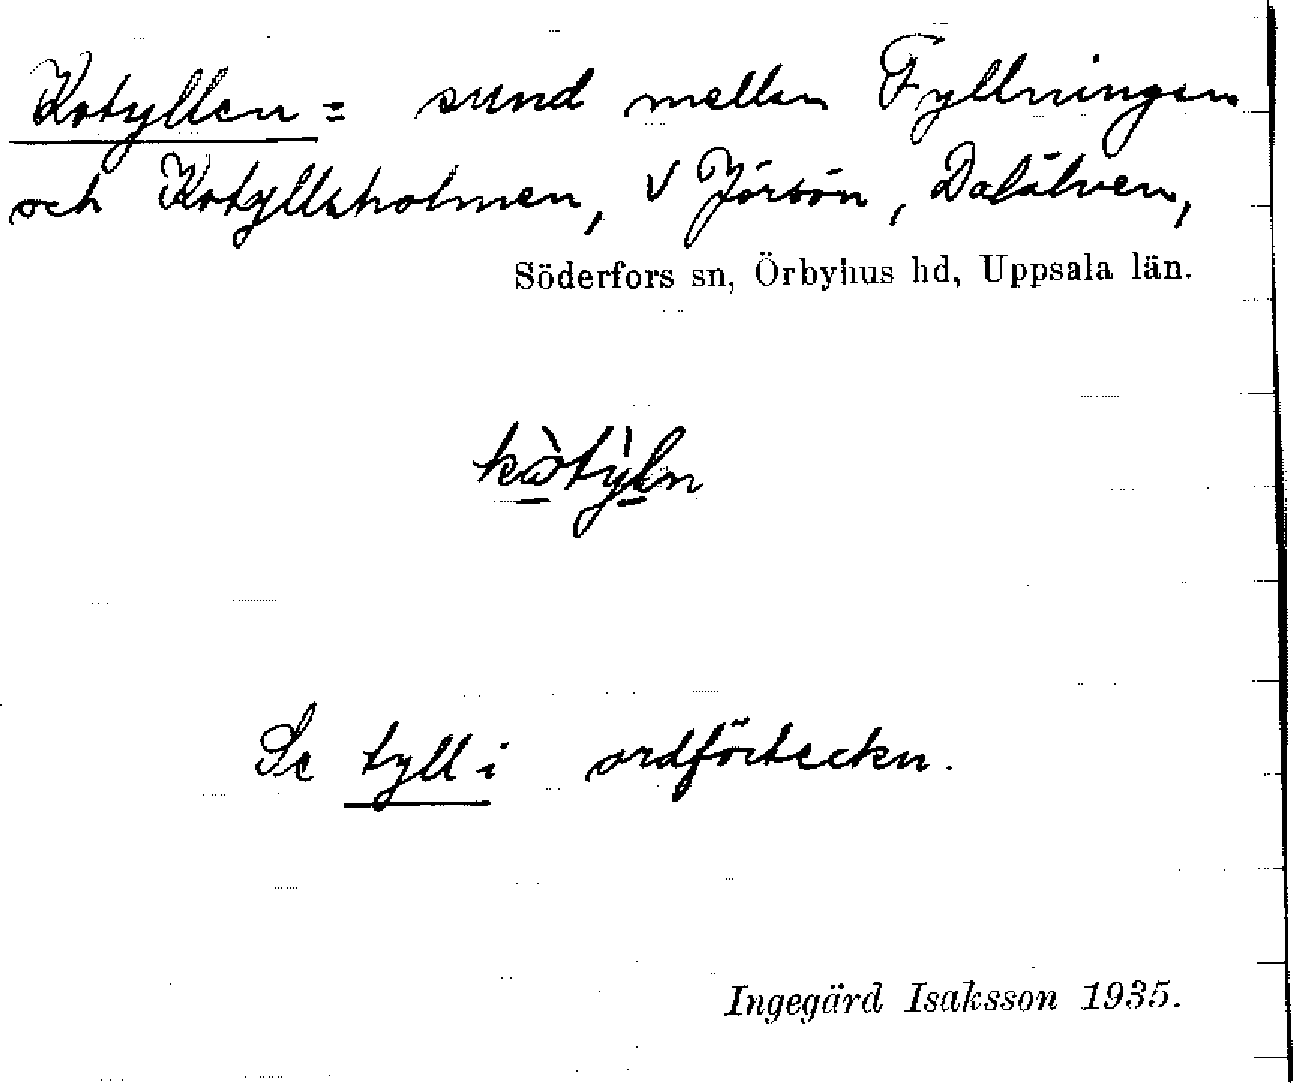 Kotyllen = sund mellan Fyllningen
och Kotyllsholmen, V Jörsön, Dalälven,
Söderfors sn, Örbyhus hd, Uppsala län.
Se tyll i ordförteckn.
Ingegärd Isaksson 1935.